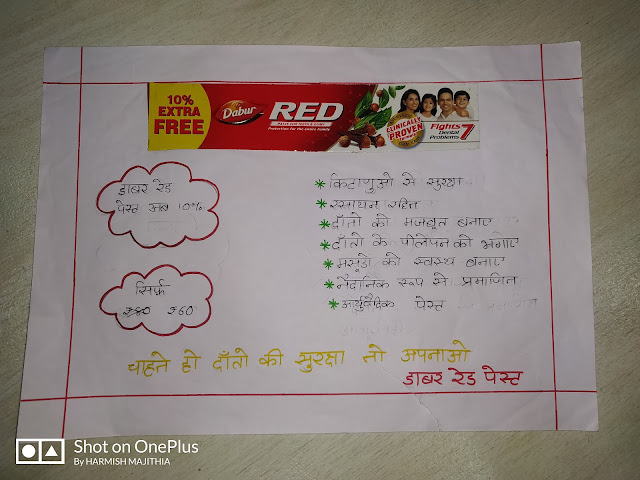 10%
EXTRA
FREE
Dabur
RED
PASTE FOR TEETH & GUMS
Protection for the entire Family
CLINICALLY
PROVEN
Fights
Dental
Problems 7
डाबर रेड
पेस्ट अब 10%
सिर्फ़
₹80 ₹60
* किटाणुओ से सुरक्षा
* रसायन रहित
* दाँतो को मजबूत बनाए
* दाँतो के पीलेपन को भगाए
* मसूडो को स्वस्थ बनाए
* नैदानिक रूप से प्रमाणित
* आर्युवैदिक पेस्ट
चाहते हो दाँतो की सुरक्षा तो अपनाओ
डाबर रेड पेस्ट
Shot on OnePlus
By HARMISH MAJITHIA